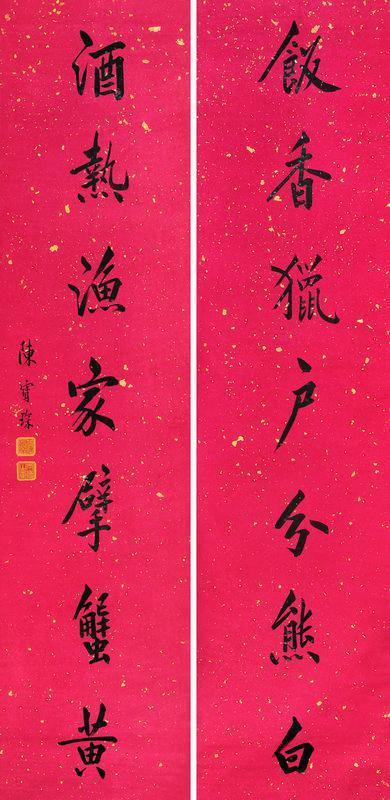 飯香獵戶分熊白
酒熱漁家擘蟹黃
陳寶琛